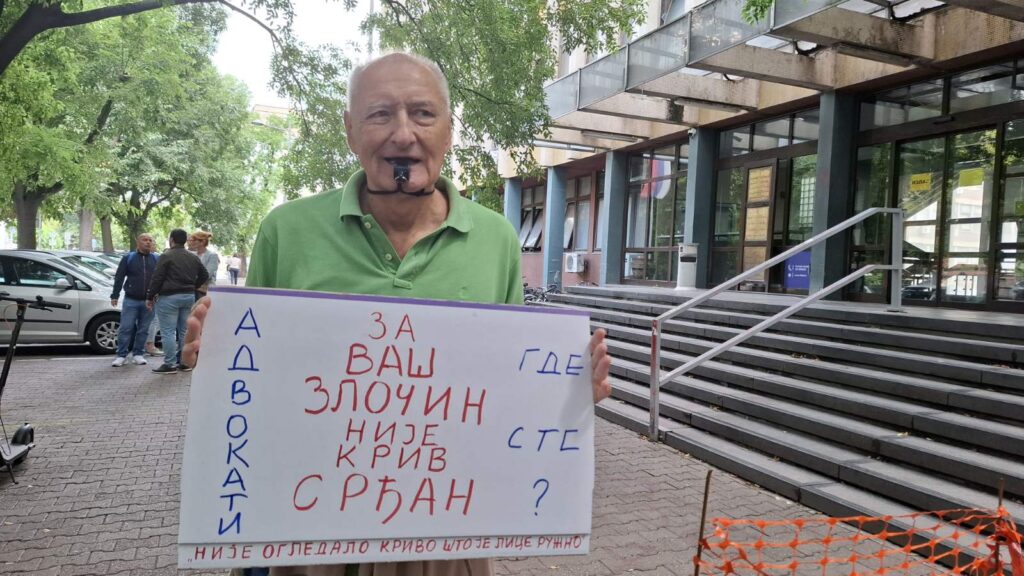 АДВОКАТИ
ЗА
ВАШ
ЗЛОЧИН
НИЈЕ
КРИВ
СРЂАН
ГДЕ
СТЕ
?
„НИЈЕ ОГЛЕДАЛО КРИВО ШТО ЈЕ ЛИЦЕ РУЖНО"